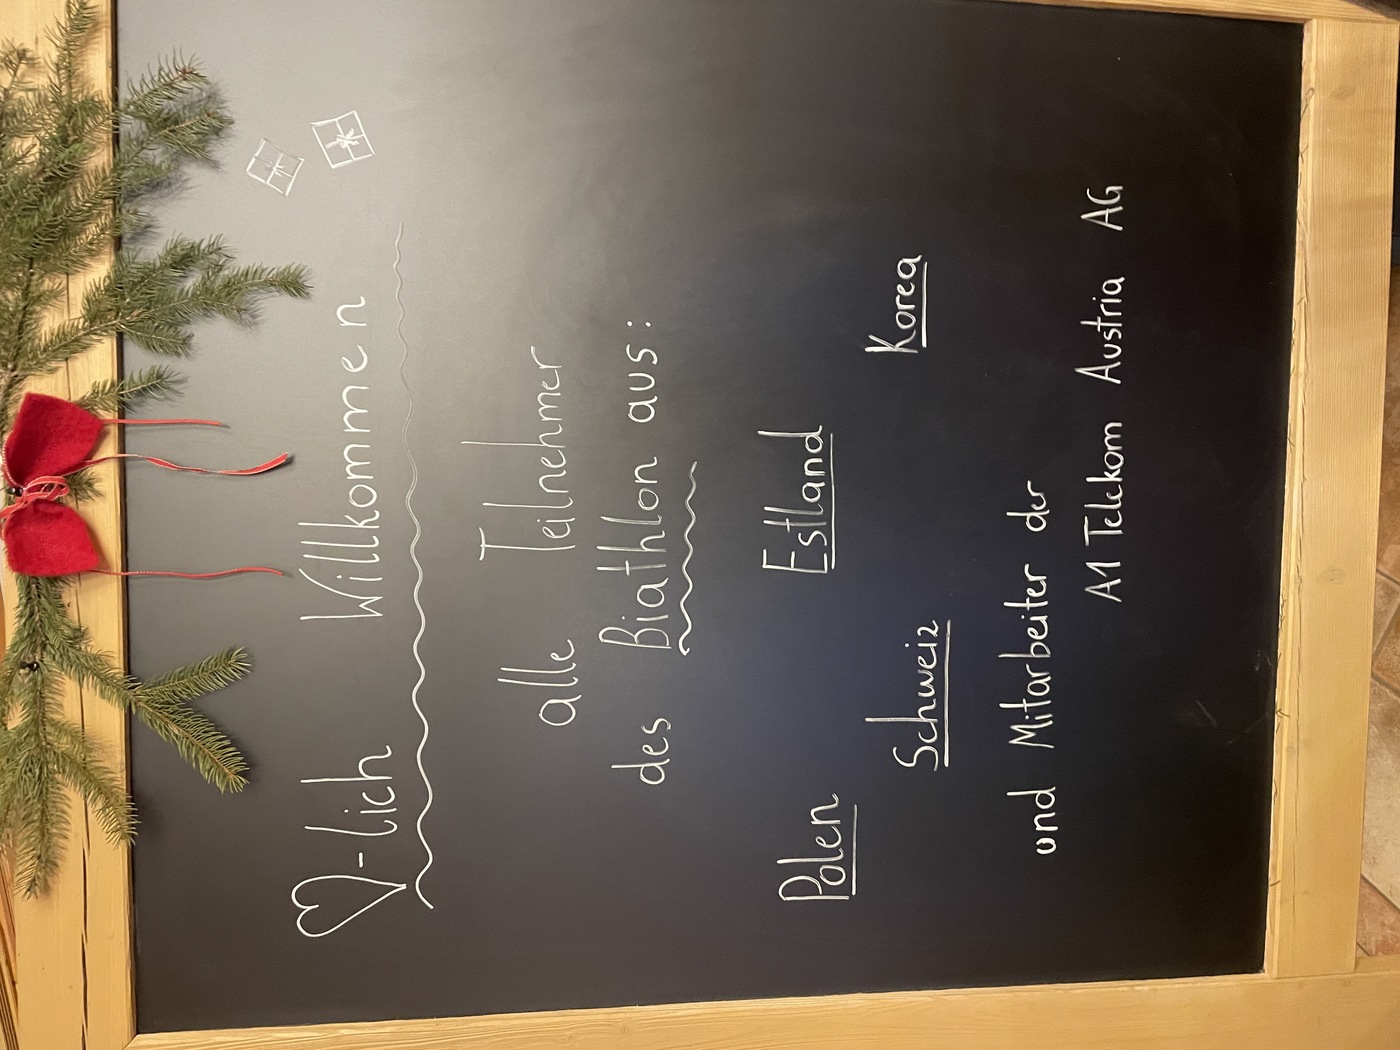 ♡-lich Willkommen
alle Teilnehmer
des Biathlon aus:
Polen Estland
Schweiz Korea
und Mitarbeiter der
A1 Telekom Austria AG